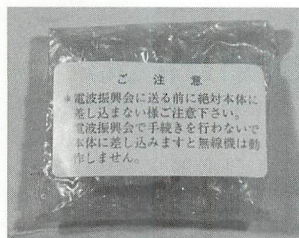 ご注意
＊電波振興会に送る前に絶対本体に
差し込まない様ご注意下さい。
電波振興会で手続きを行わないで
本体に差し込みますと無線機は動
作しません。